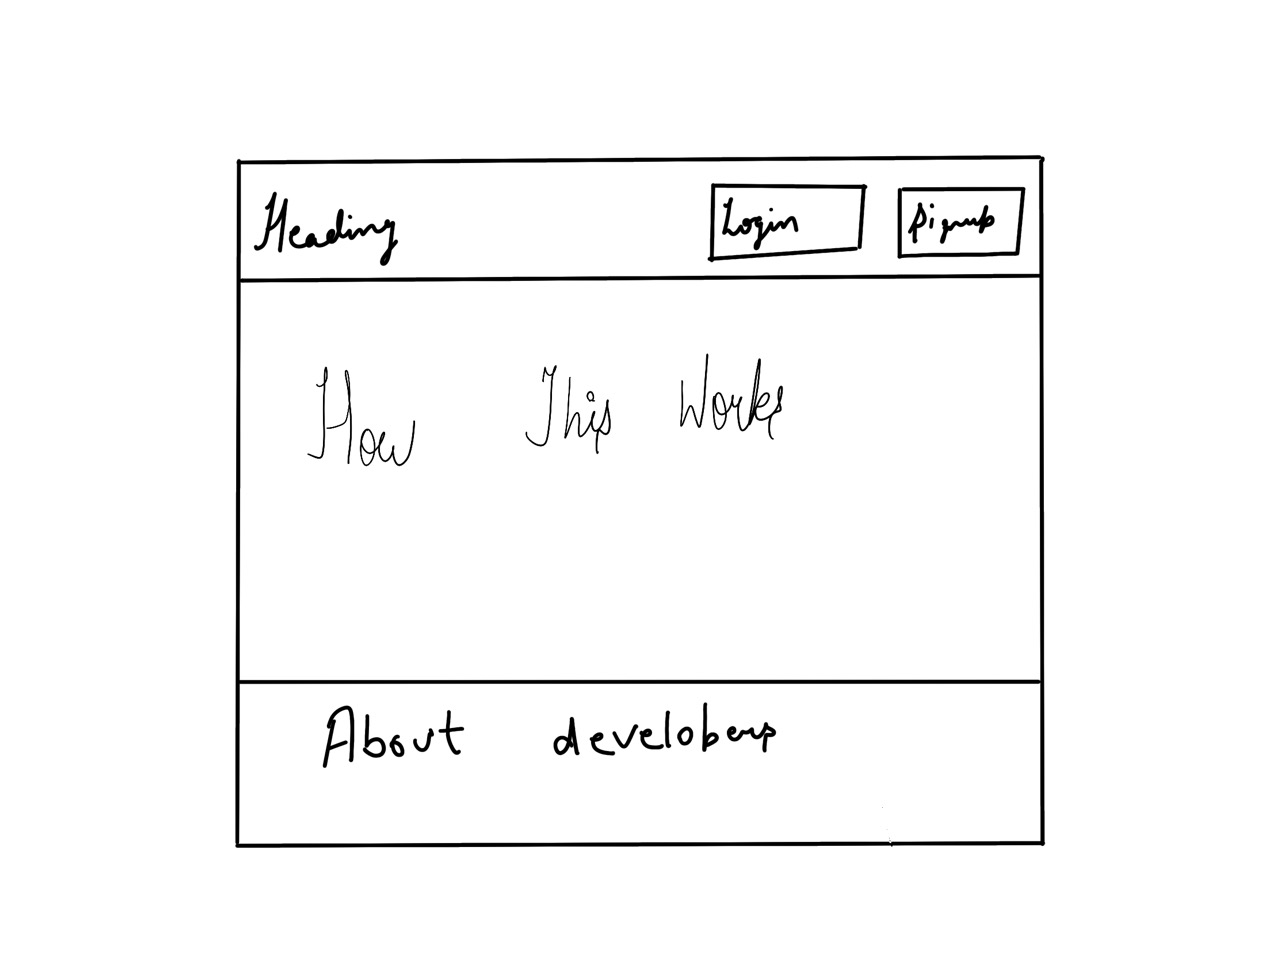 Heading
Login
Signup
How This Works
About developers